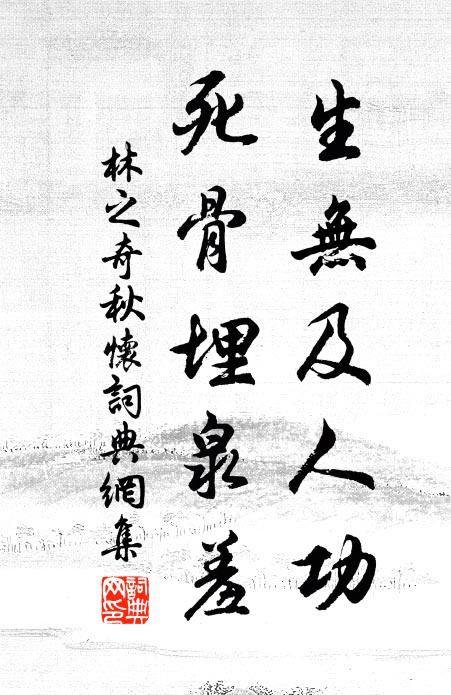 生無及人功
死骨埋泉羞
林之奇秋懷詞典網集
詞典網印